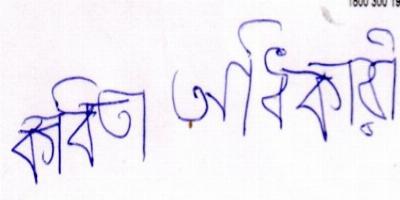 1800 300 19
কবিতা অধিকারী